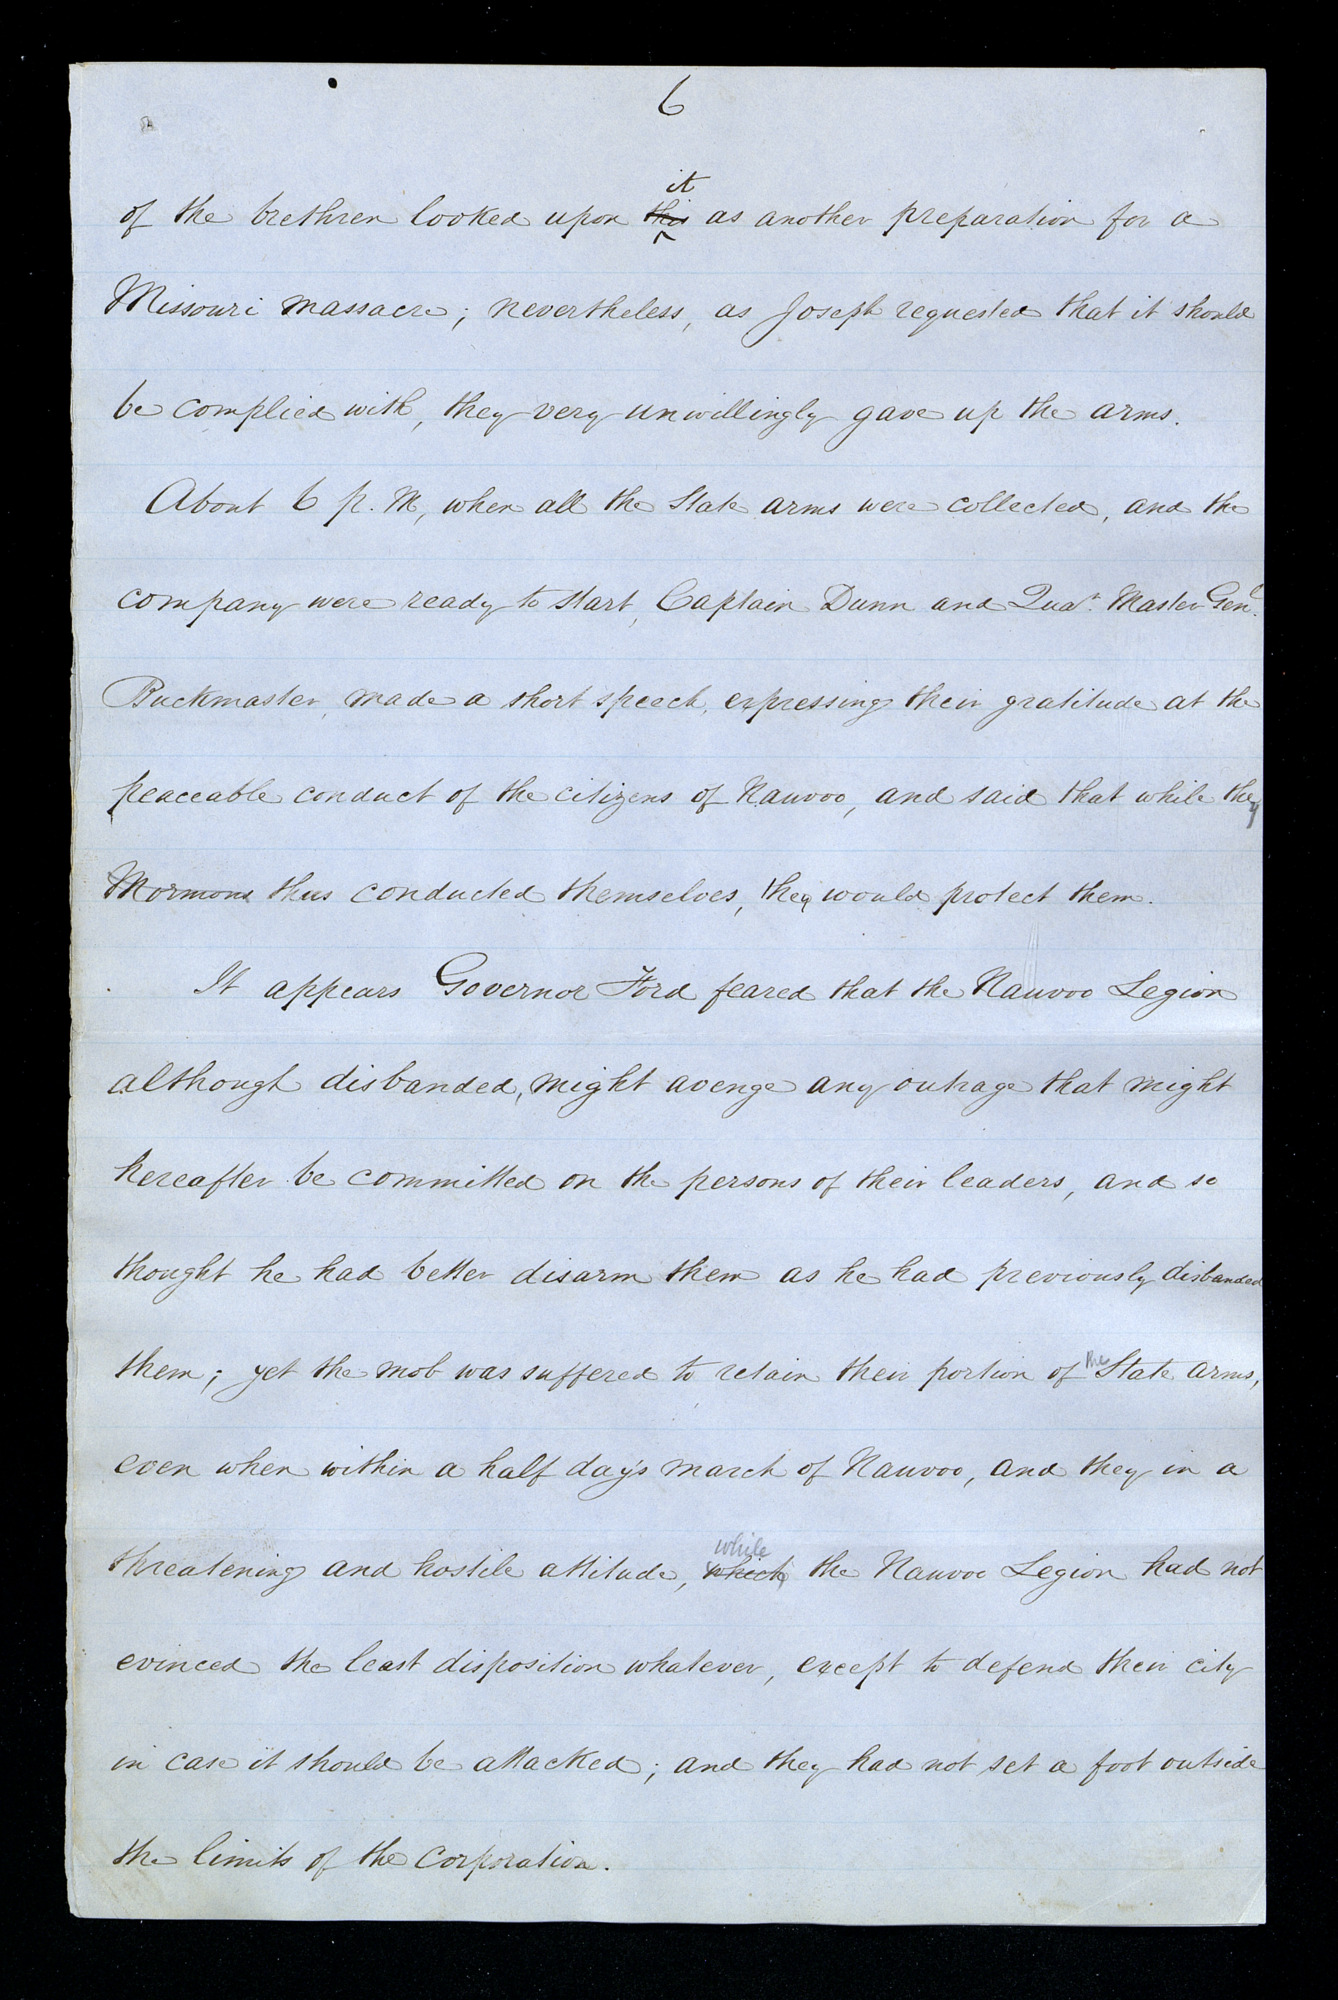 6
of the brethren looked upon this it as another preparation for a
Missouri massacre; nevertheless, as Joseph requested that it should
be complied with, they very unwillingly gave up the arms.
About 6 p. M, when all the State arms were collected, and the
company were ready to start, Captain Dunn and Quar. Master Genl.
Buckmaster, made a short speech, expressing their gratitude at the
peaceable conduct of the citizens of Nauvoo, and said that while they
Mormons thus conducted themselves, they would protect them.
It appears Governor Ford feared that the Nauvoo Legion
although disbanded, might avenge any outrage that might
hereafter be committed on the persons of their leaders, and so
thought he had better disarm them as he had previously disbanded
them; yet the mob was suffered to retain their portion of the State arms,
even when within a half day's march of Nauvoo, and they in a
threatening and hostile attitude, which while the Nauvoo Legion had not
evinced the least disposition whatever, except to defend their city
in case it should be attacked; and they had not set a foot outside
the limits of the corporation.